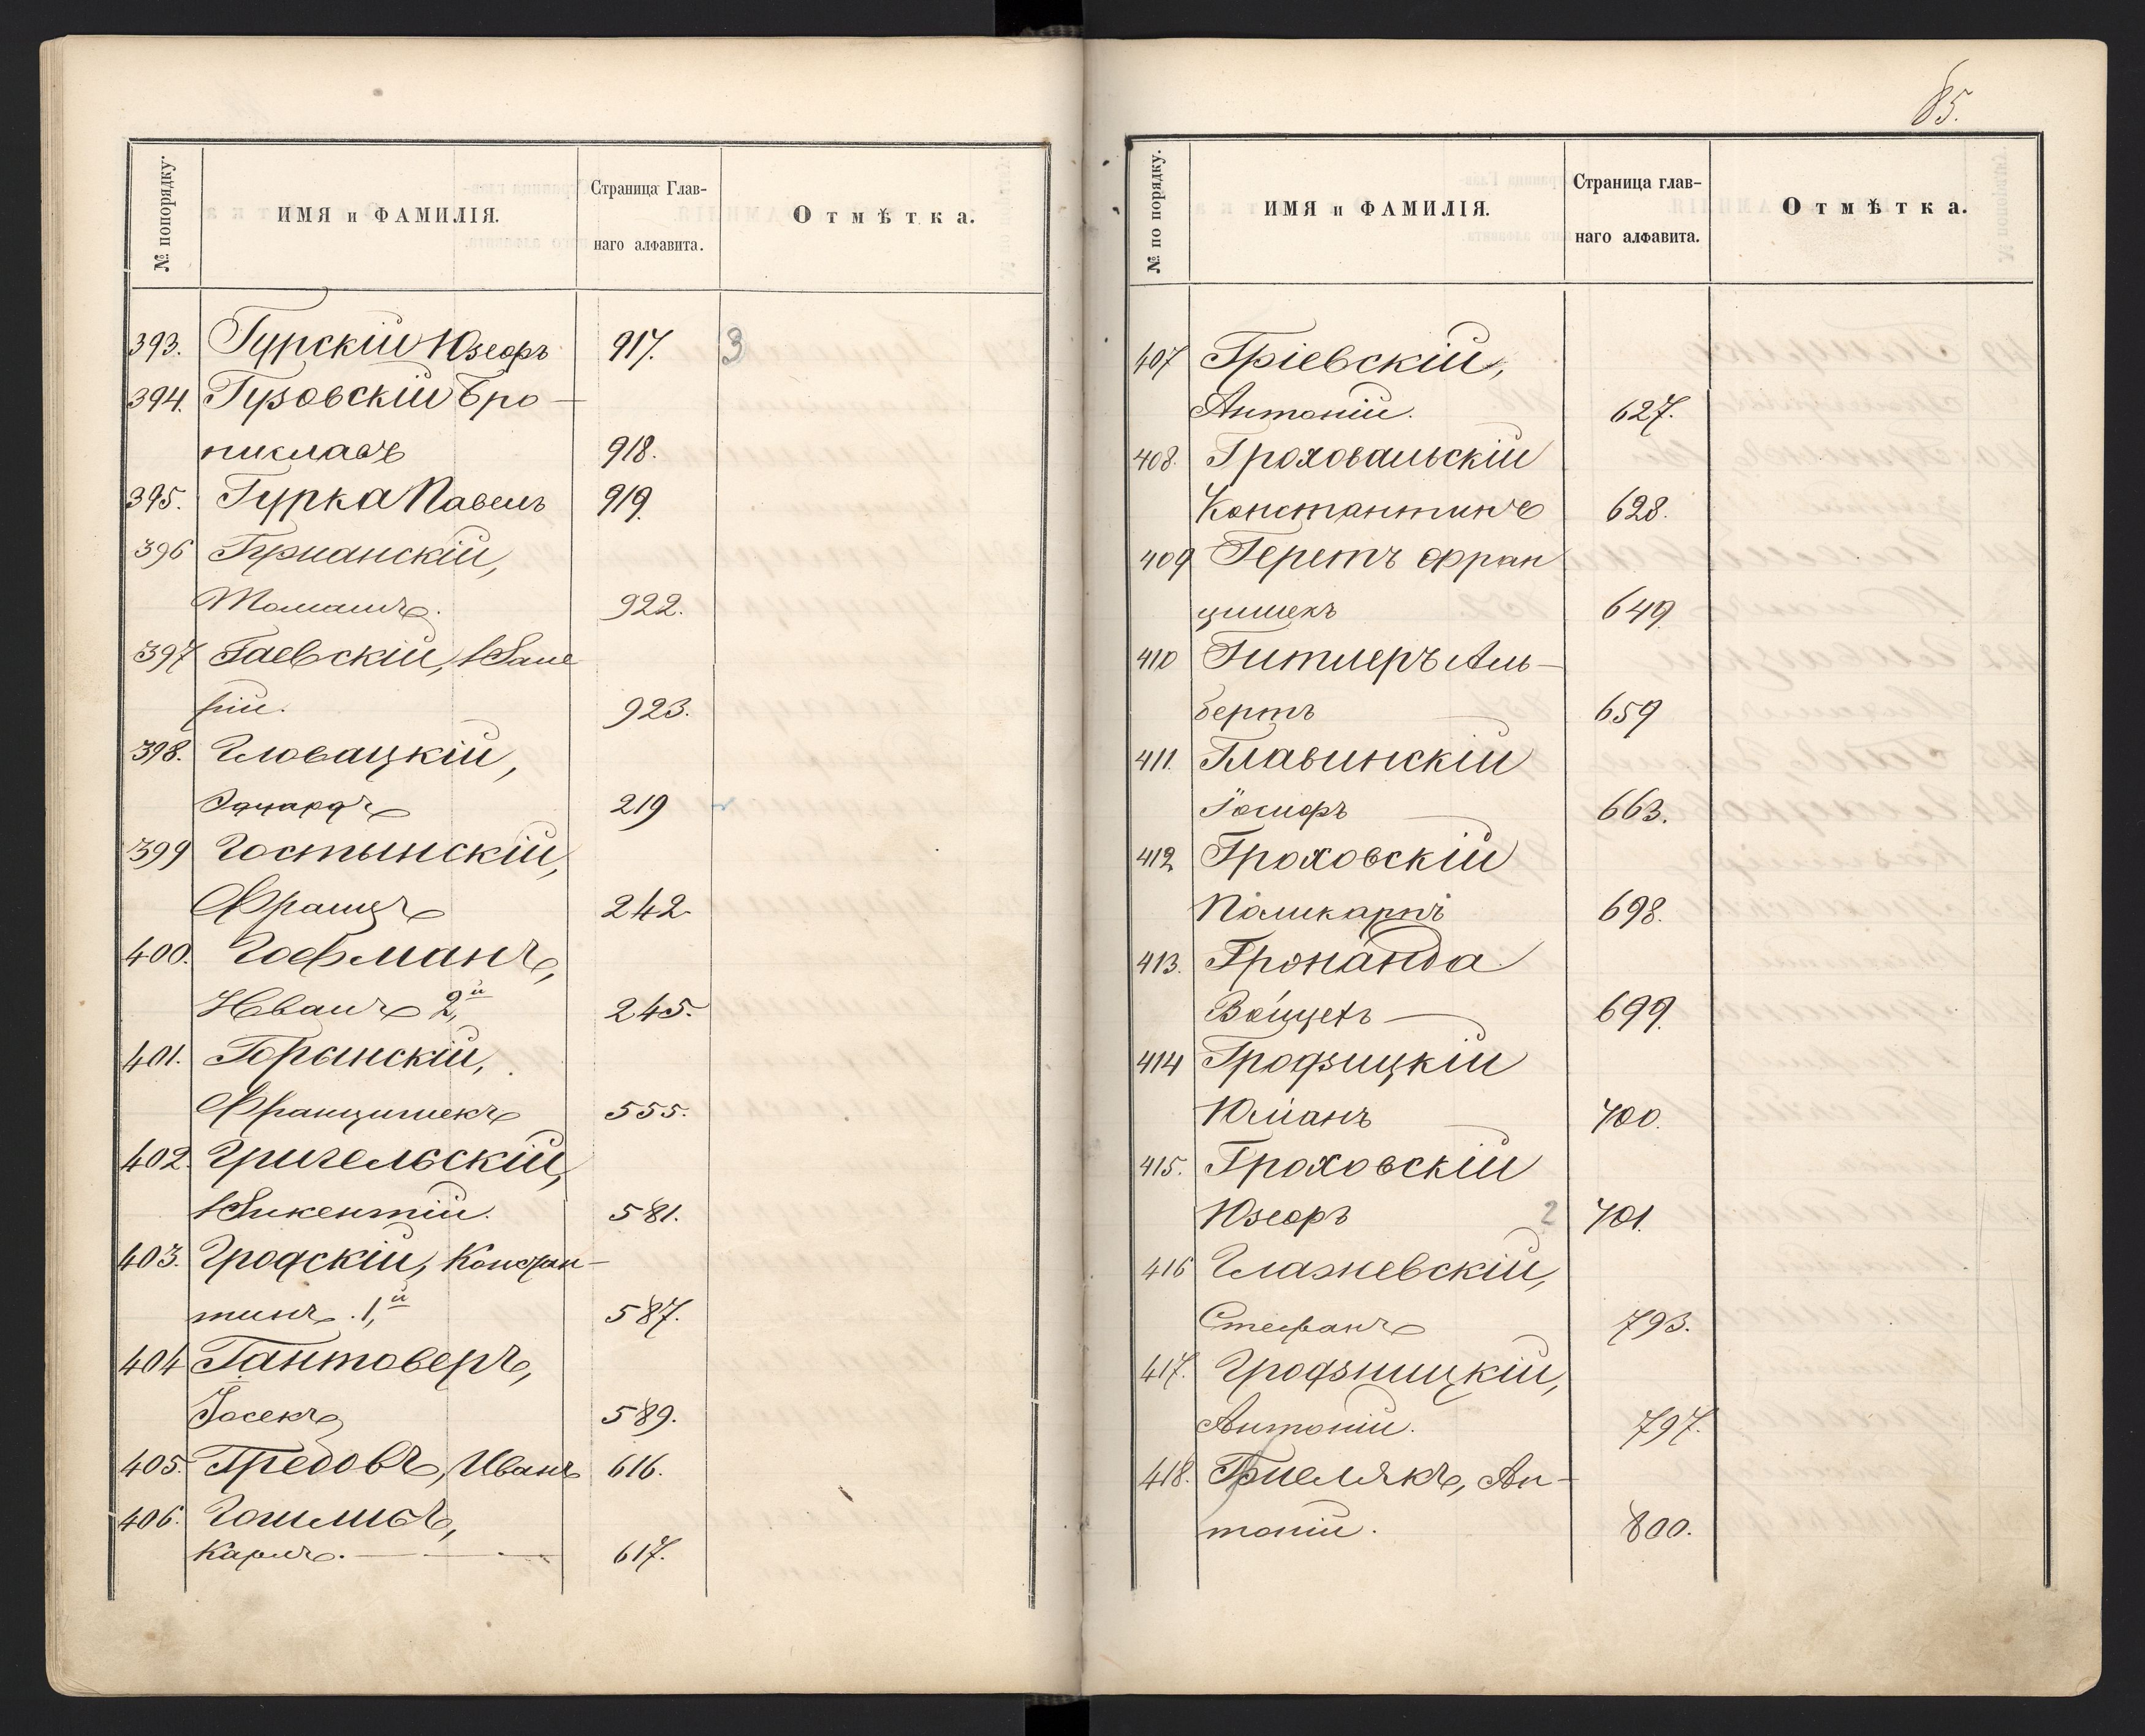 № попорядку.
ИМЯ и ФАМИЛІЯ.
Страница Глав-
наго алфавита.
Отмѣтка.
393. Гурскій Юзефъ 917. 3
394. Гузовскій Бро-
ниславъ 918.
395. Гурка Павелъ 919.
396
Томашъ. 922.
397 Гаевскій, Вале
рій. 923.
398. Гловацкій,
Эдуардъ 219
399 Гостынскій,
Францъ 242.
400. Гофманъ,
Иванъ 2й 245.
401. Горынскій,
Францишекъ 555.
402. Григельскій,
Викентій. 581.
403. Гродскій, Констан-
тинъ. 1й 587.
404 Гантоверъ,
Іосекъ 589.
405. Гредовъ, Иванъ 616.
406.
Карлъ. 617.
85.
№ по порядку.
ИМЯ и ФАМИЛІЯ.
Страница глав-
наго алфавита.
Отмѣтка.
407 Гріевскій,
Антоній. 627.
408. Гроховальскій
Константинъ 628.
409 Геретъ Фран
цишекъ 649
410 Гитлеръ Аль-
бертъ 659
411. Главинскій
Іосифъ 663.
412 Гроховскій
Поликарпъ 698.
413. Гронанда
699.
414 Гродзицкій
Юліанъ 700.
415. Гроховскій
Юзефъ 2 701.
416 Глажевскій,
Стефанъ 793.
417. Гродзницкій,
Антоній. 797.
418. Гмелякъ, Ан-
тоній. 800.